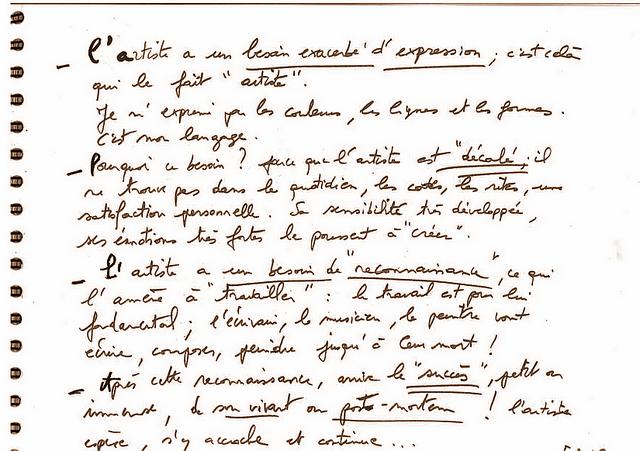 - L'artiste a un besoin exacerbé d'expression ; c'est cela
qui le fait "artiste".
Je m'exprime par les couleurs, les lignes et les formes.
C'est mon langage.
- Pourquoi ce besoin ? parce que l'artiste est "décalé", il
ne trouve pas dans le quotidien, les codes, les rites, une
satisfaction personnelle. Sa sensibilité très développée,
ses émotions très fortes le poussent à "créer".
- L'artiste a un besoin de "reconnaissance", ce qui
l'amène à "travailler" : le travail est pour lui
fondamental ; l'écrivain, le musicien, le peintre vont
écrire, composer, peindre jusqu'à leur mort !
- Après cette reconnaissance, arrive le "succès", petit ou
immense, de son vivant ou post-mortem ! l'artiste
espère, s'y accroche et continue...